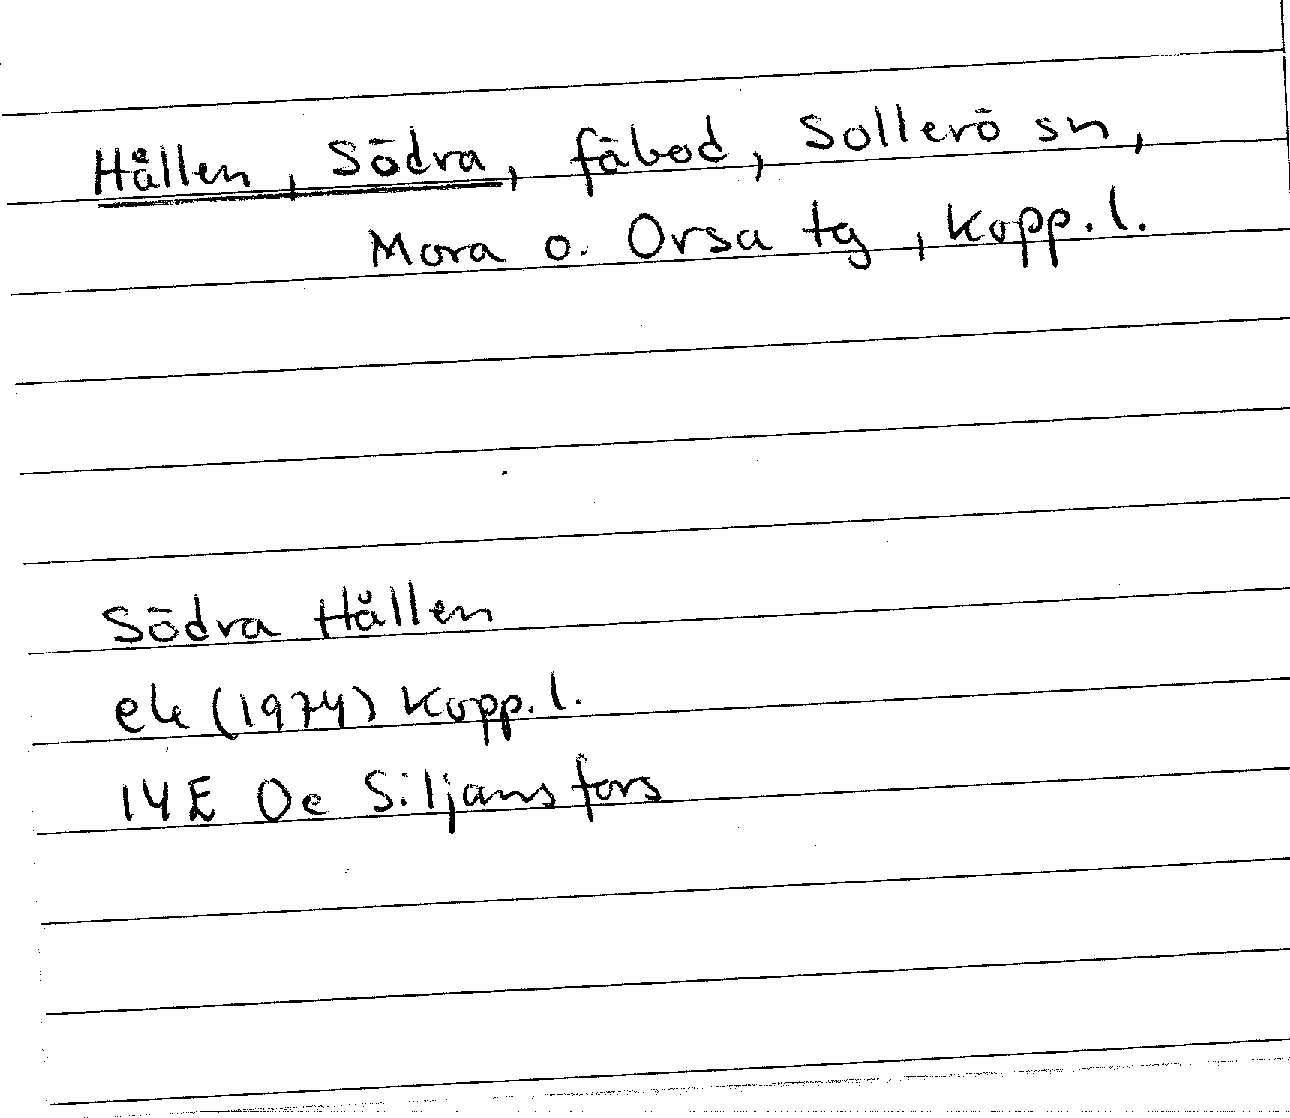 Hållen, Södra, fäbod, Sollerö sn,
Mora o. Orsa tg, Kopp. l.
Södra Hållen
ek (1974) Kopp. l.
14E 0e Siljansfors